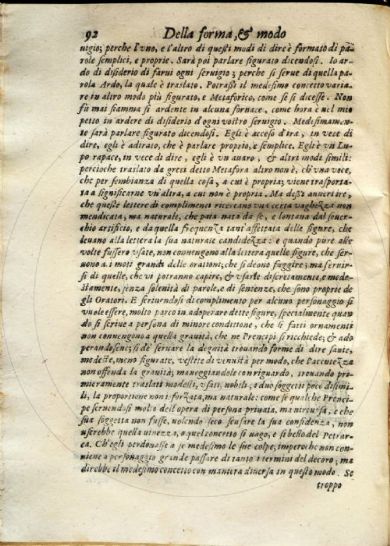 92 Della forma, & modo
uigio; perche l'vno, e l'altro di questi modi di dire è formato di pa
role semplici, e proprie. Sarà poi parlare figurato dicendosi. Io ar-
do di disiderio di farui ogni seruigio; perche si serue di quella pa
rola Ardo, la quale è traslato. Potrassi il medesimo concetto varia-
re in altro modo più figurato, e Metaforico, come se si dicesse. Non
fù mai fiamma sì ardente in alcuna fornace, come hora è nel mio
petto in ardere di disiderio d'ogni vostro seruigio. Medesimamen-
te sarà parlare figurato dicendosi. Egli è acceso d'ira, in vece di
dire, egli è adirato, che è parlare proprio, e semplice. Egli è vn Lu-
po rapace, in vece di dire, egli è vn auaro, & altri modi simili:
percioche traslato da greci detto Metafora altro non è, ch'vna voce,
che per sembianza di quella cosa, a cui è propria, viene trasporta-
ta a significarne vn'altra, a cui non è propria. Ma dessi auuertire,
che queste lettere di complimenti ricercano vna certa vaghezza non
mendicata, ma naturale, che paia nata da se, e lontana dal souer-
chio artificio, e da quella frequenza tant'affettata delle figure, che
leuano alla lettera la sua naturale candidezza: e quando pure alle
volte fussero vsate, non conuengono alla lettera quelle figure, che ser-
uono a i moti grandi delle orationi; che si deono fuggire; ma seruir-
si di quelle, che vi potranno capire, & vsarle discretamente, e mode-
stamente, senza solenità di parole, e di sentenze, che sono proprie de
gli Oratori. E scriuendosi di complimento per alcuno personaggio si
vuole essere, molto parco in adoperare dette figure, specialmente quan
do si scriue a persona di minore conditione, che sì fatti ornamenti
non conuengono a quella grauità, che ne' Prencipi si richiede; & ado
perandosene; si de' seruare la degnità trouando forme di dire sante,
modeste, meno figurate, vestite di venustà per modo, che l'acconcezza
non offenda la grauità; maneggiandole con riguardo, trouando pri-
mieramente traslati modesti, vsati, nobili, e due soggetti poco dissimi-
li, la proportione non isforzata, ma naturale: come se qualche Prenci-
pe seruendosi molto dell'opera di persona priuata, ma virtuosa, e che
sua soggetta non fusse, uolendo seco scusare la sua confidenza, non
userebbe quella uiuezza, o quel concetto sì uago, e sì bello del Petrar-
ca. Ch'egli perdonasse a se medesimo le sue colpe; imperoche non con-
uiene a personaggio grande passare di tanto i termini del decoro; ma
direbbe il medesimo concetto con maniera diuersa in questo modo. Se
troppo